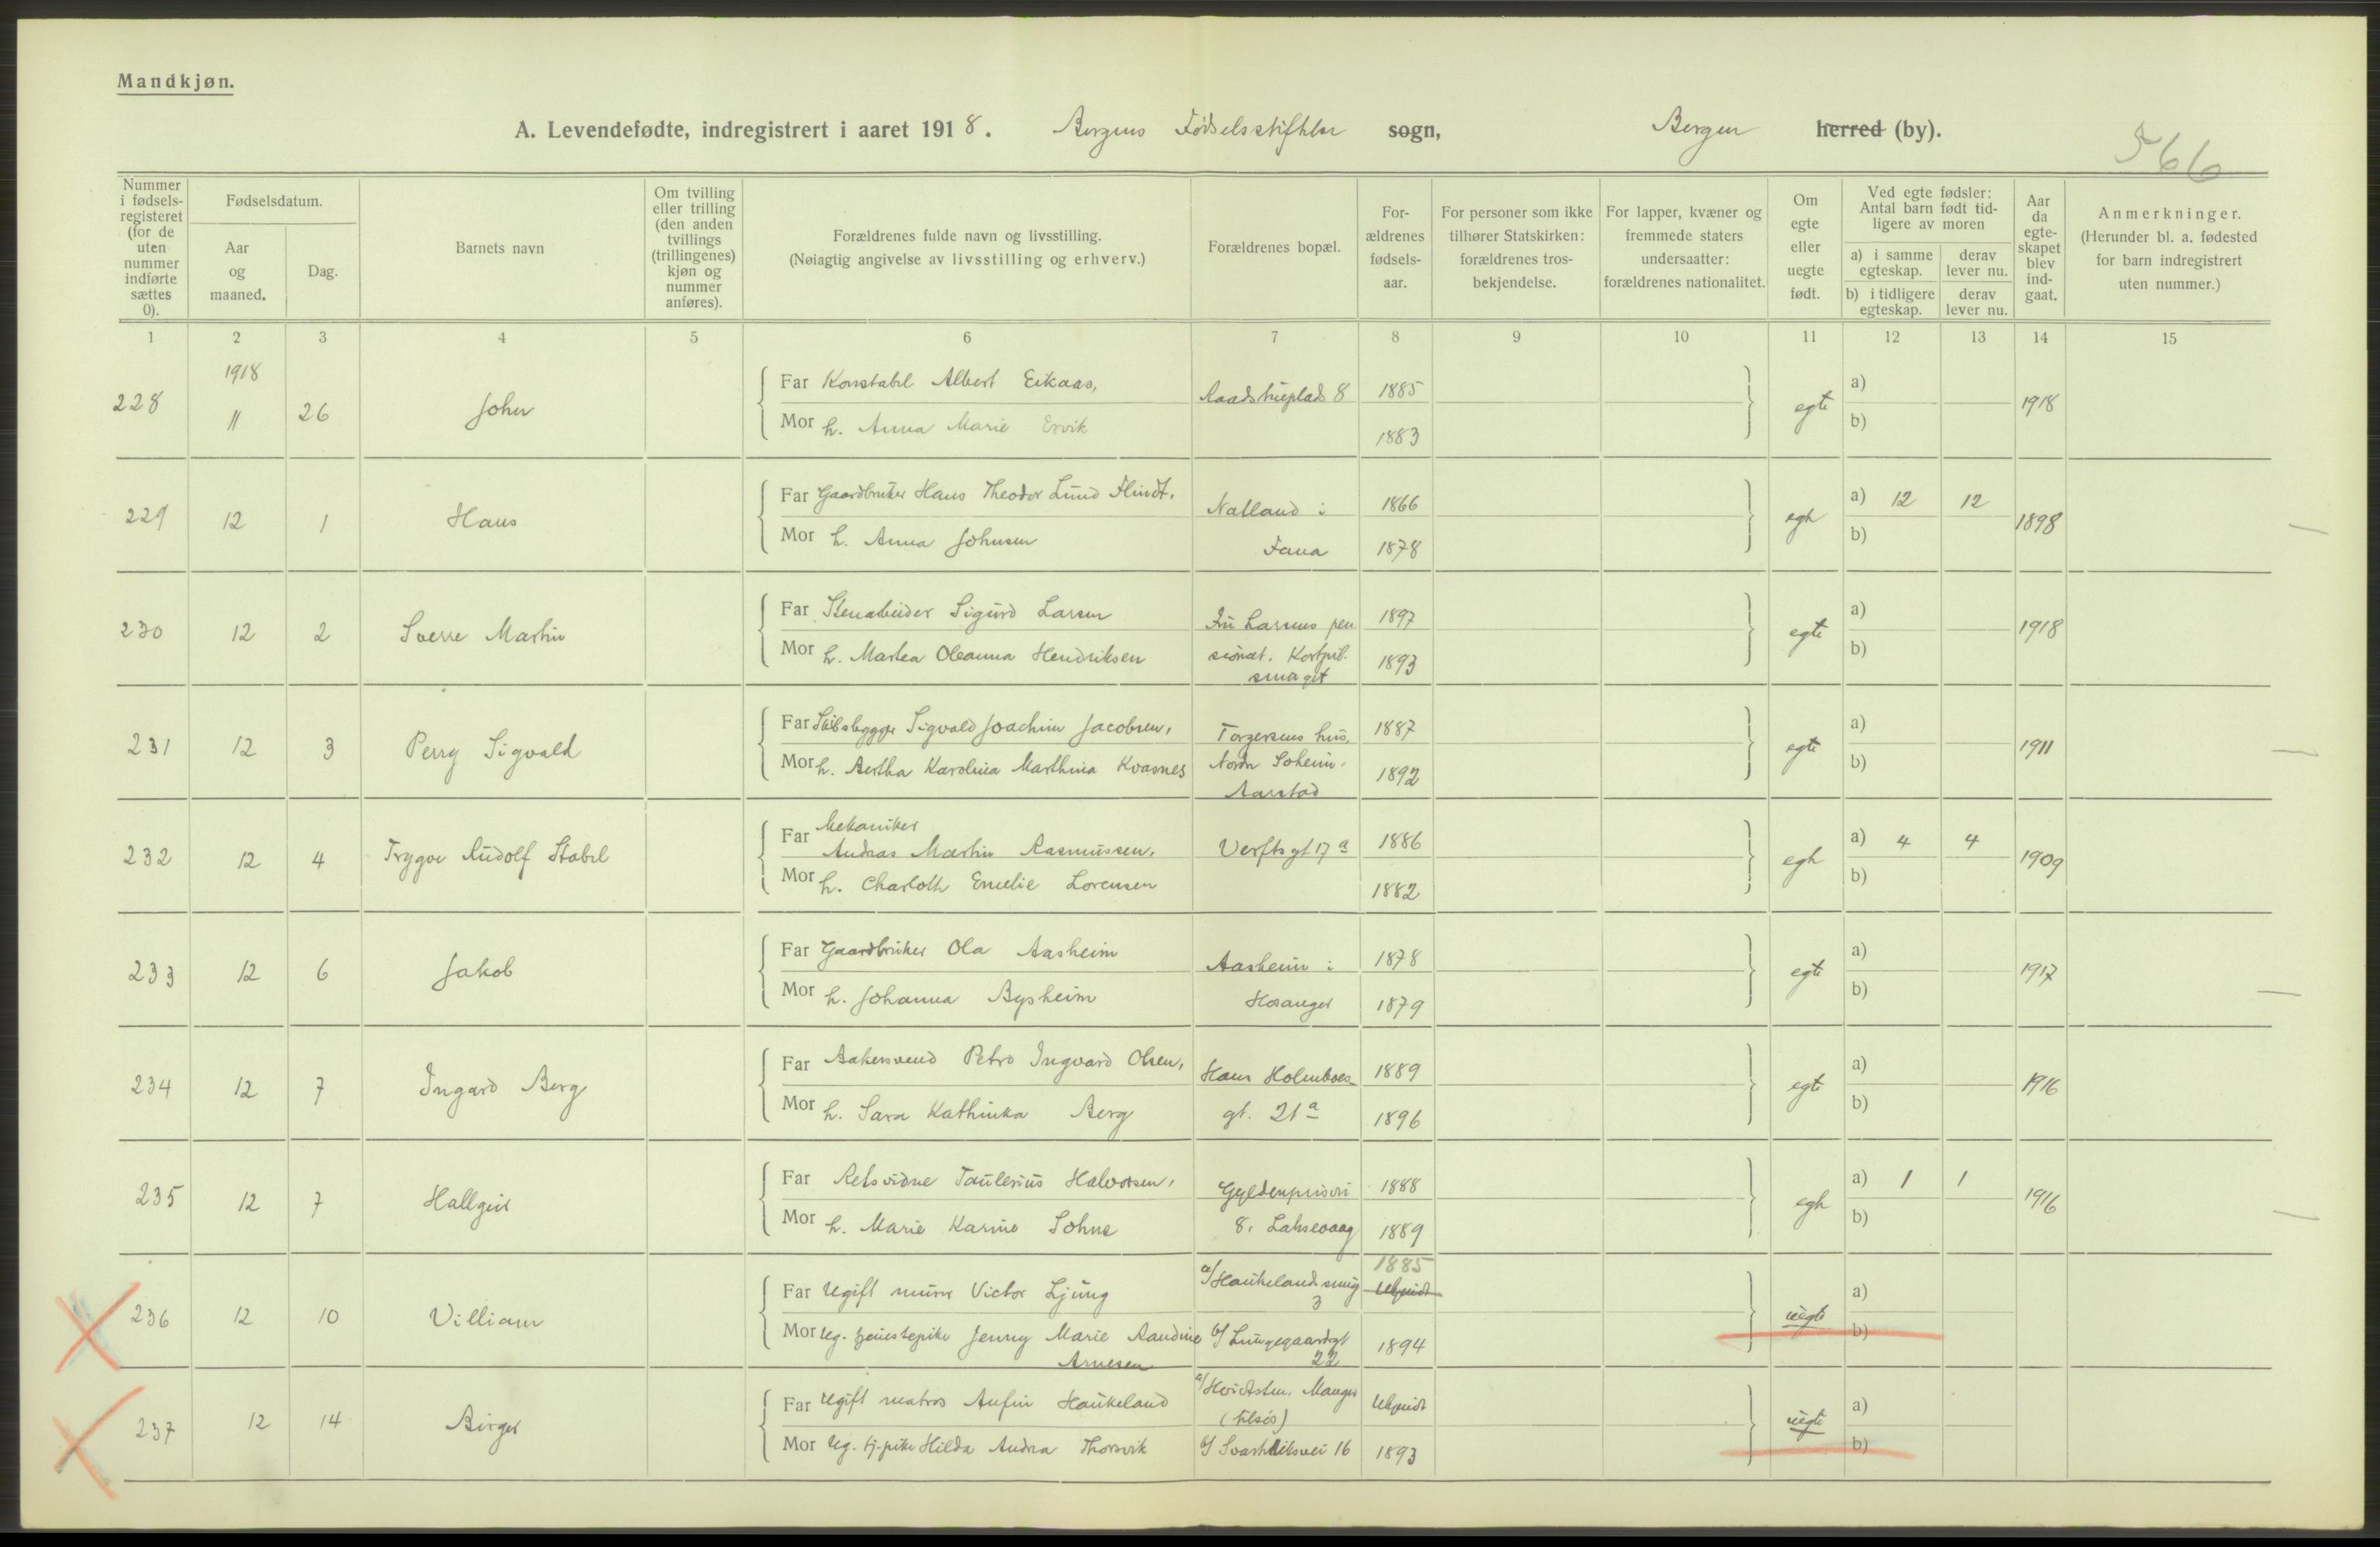 Mandkjøn.
A. Levendefødte, indregistrert i aaret 1918. Bergens Fødselsstiftelse sogn, Bergen herred (by).
566
Nummer i fødselsregisteret (for de uten nummer indførte sættes 0).
Fødselsdatum.
Aar og maaned.
Dag.
Barnets navn
Om tvilling eller trilling (den anden tvillings (trillingenes) kjøn og nummer anføres).
Forældrenes fulde navn og livsstilling. (Nøiagtig angivelse av livsstilling og erhverv.)
Forældrenes bopæl.
Forældrenes fødselsaar.
For personer som ikke tilhører Statskirken: forældrenes trosbekjendelse.
For lapper, kvæner og fremmede staters undersaatter: forældrenes nationalitet.
Om egte eller uegte født.
Ved egte fødsler: Antal barn født tidligere av moren
a) i samme egteskap.
derav lever nu.
b) i tidligere egteskap.
derav lever nu.
Aar da egteskapet blev indgaat.
Anmerkninger. (Herunder bl. a. fødested for barn indregistrert uten nummer.)
1 2 3 4 5 6 7 8 9 10 11 12 13 14 15
1918
228 11 26 John Far Konstabel Albert Eikaas, Raadstueplads 8 1885 egte a) 1918
Mor h. Anna Marie Ervik 1883 b)
229 12 1 Hans Far Gaardbruker Hans Theodor Lund Flindt. Natland i 1866 egte a) 12 12 1898
Mor h. Anna Johnsen Fana 1878 b)
230 12 2 Sverre Martin Far Stenarbeider Sigurd Larsen Fru Larsens pen 1897 egte a) 1918
Mor h. Martea Oleanna Hendriksen sionat. 1893 b)
231 12 3 Perry Sigvald Far Sigvald Joachim Jacobsen, Torgersens hus, 1887 egte a) 1911
Mor h. Bertha Karolina Marthina Kvasnes Nordre Solheim. 1892 b)
Aarstad
232 12 4 Trygve Rudolf Stabel Far Mekaniker
Andreas Martin Rasmussen, Verftsgt 17 a 1886 egte a) 4 4 1909
Mor h. Charlotte Emelie Lorensen 1882 b)
233 12 6 Jakob Far Gaardbruker Ola Aasheim Aasheim i 1878 egte a) 1917
Mor h. Johanna Bysheim Hosanger 1879 b)
234 12 7 Ingard Berg Far Bakersvend Petro Ingvard Olsen, Hans Holmboes 1889 egte a) 1916
Mor h. Sara Kathinka Berg gt. 21 a 1896 b)
235 12 7 Hallgeir Far Retsvidne Taulerius Halvorsen, Gyldenprisvei 1888 egte a) 1 1 1916
Mor h. Marie Karine Sohne 8, Laksevaag 1889 b)
1885
236 12 10 Villiam Far Ugift murer Victor Ljung a/ Haukelandsmug 3 Ubekjendt uegte a)
Mor Ug. tjenestepike Jenny Marie Raudine b/ Lungegaardsgt 22 1894 b)
Arnesen
237 12 14 Birger Far Ugift matros Anfin Haukeland a/ Hvidsten, Manger uegte a)
(tilsjøs)
Mor Ug. tj-pike Hilda Andrea Thorsvik b/ 16 1893 b)